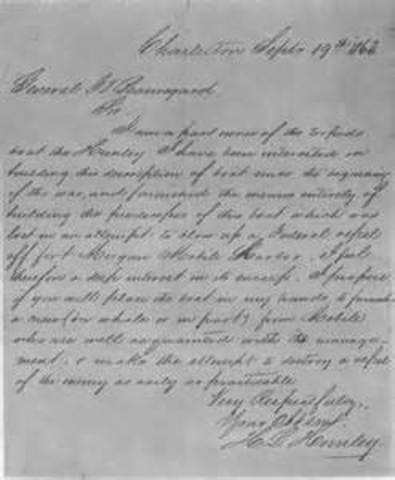 Charleston Septr 19th 1863
General G T Beauregard
Sir
I am a part owner of the torpedo
boat the Hunley I have been interested in
building this description of boat since the beginning
of the war, and furnished the means entirely of
building the predecessor of this boat which was
lost in an attempt to blow up a Federal vessel
off fort Morgan Mobile Harbor. I feel
therefore a deep interest in its success. I propose
if you will place the boat in my hands to furnish
a crew (in whole or in part) from Mobile
who are well acquainted with its manage-
ment. & make the attempt to destroy a vessel
of the enemy as early as practicable
Very Respectfully,
Your Obt Servt
H L Hunley.